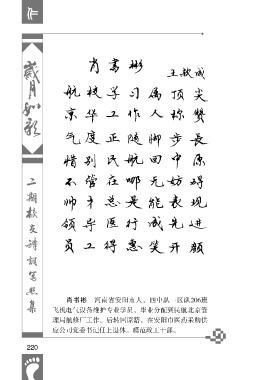 歲月如歌
二期校友诗词写照集
肖書彬
王钦成
航校学习属顶尖
京华工作人称赞
气度正随脚步長
惜别民航回中原
不管在哪无妨碍
帅才总是能表现
领导医行成先进
员工得惠笑开颜
肖书彬 河南省安阳市人，四中队一区队206班
飞机电气设备维护专业学员。毕业分配到民航北京管
理局航修厂工作。后转回原籍，在安阳市医药采购供
应公司党委书记任上退休。模范政工干部。
220